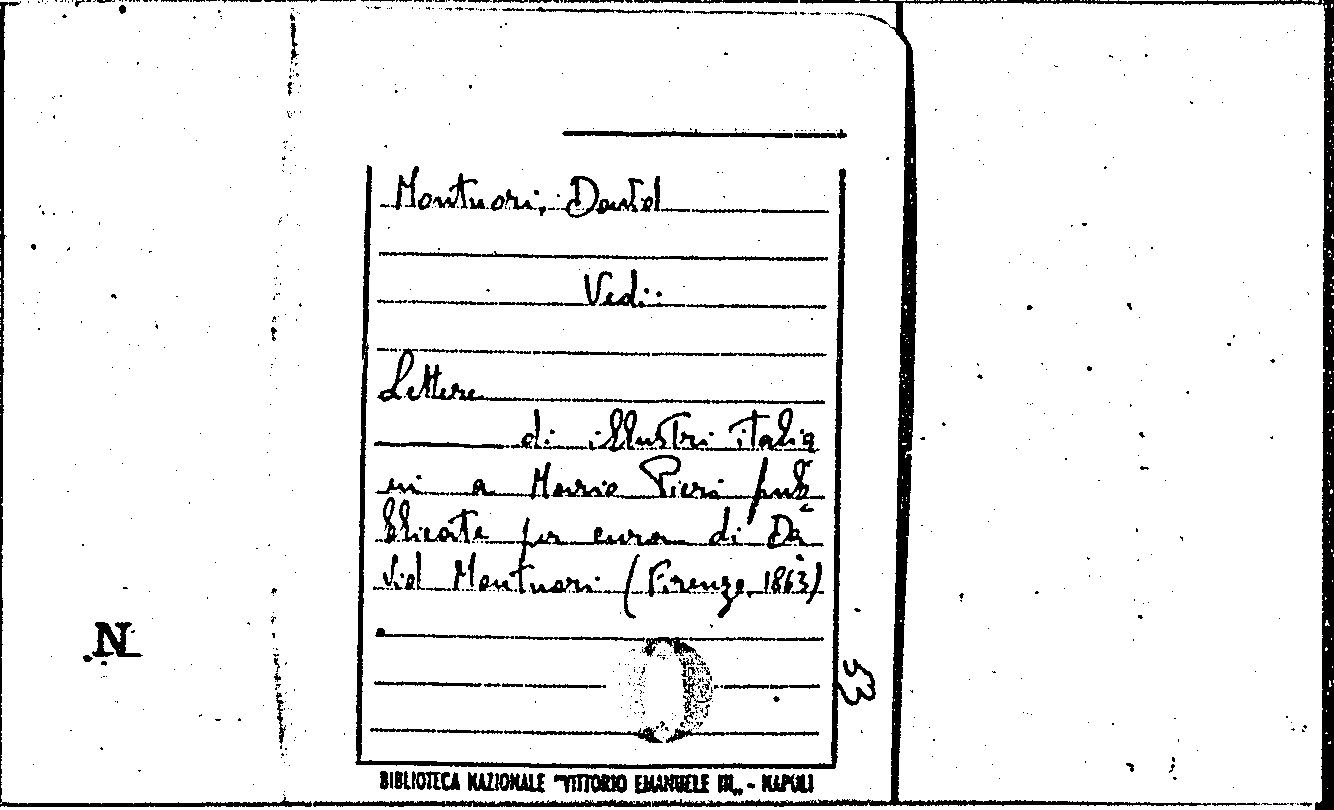 Montuori, David
Vedi:
Lettere
di illustri italia
ni a Mario Pieri pub
blicate per cura di Da
vid Montuori (Firenze, 1863)
N
53
BIBLIOTECA NAZIONALE "VITTORIO EMANUELE III„ - NAPOLI